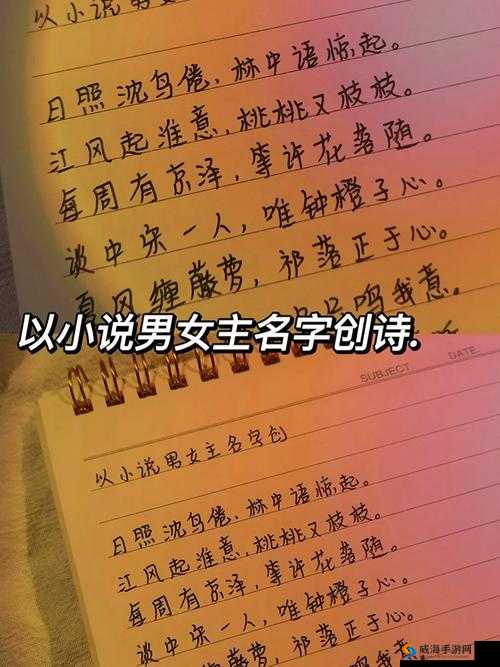 以小说男
日照沈鸟倦，林中语惊起。
江风起淮意，桃桃又枝枝。
每周有京泽，笙许花落随。
谈中宋一人，唯钟橙子心。
夏风缠薇萝，祁落正于心。
鸣我意。
以小说男女主名字创诗.
SUBJECT
DATE
以小说男女主名字创
日照沈鸟倦，林中语惊起。
江风起淮意，桃桃又枝枝。
每周有京泽，笙许花落随。
谈中宋一人，唯钟橙子心。
祁落正于心。
威海手游网